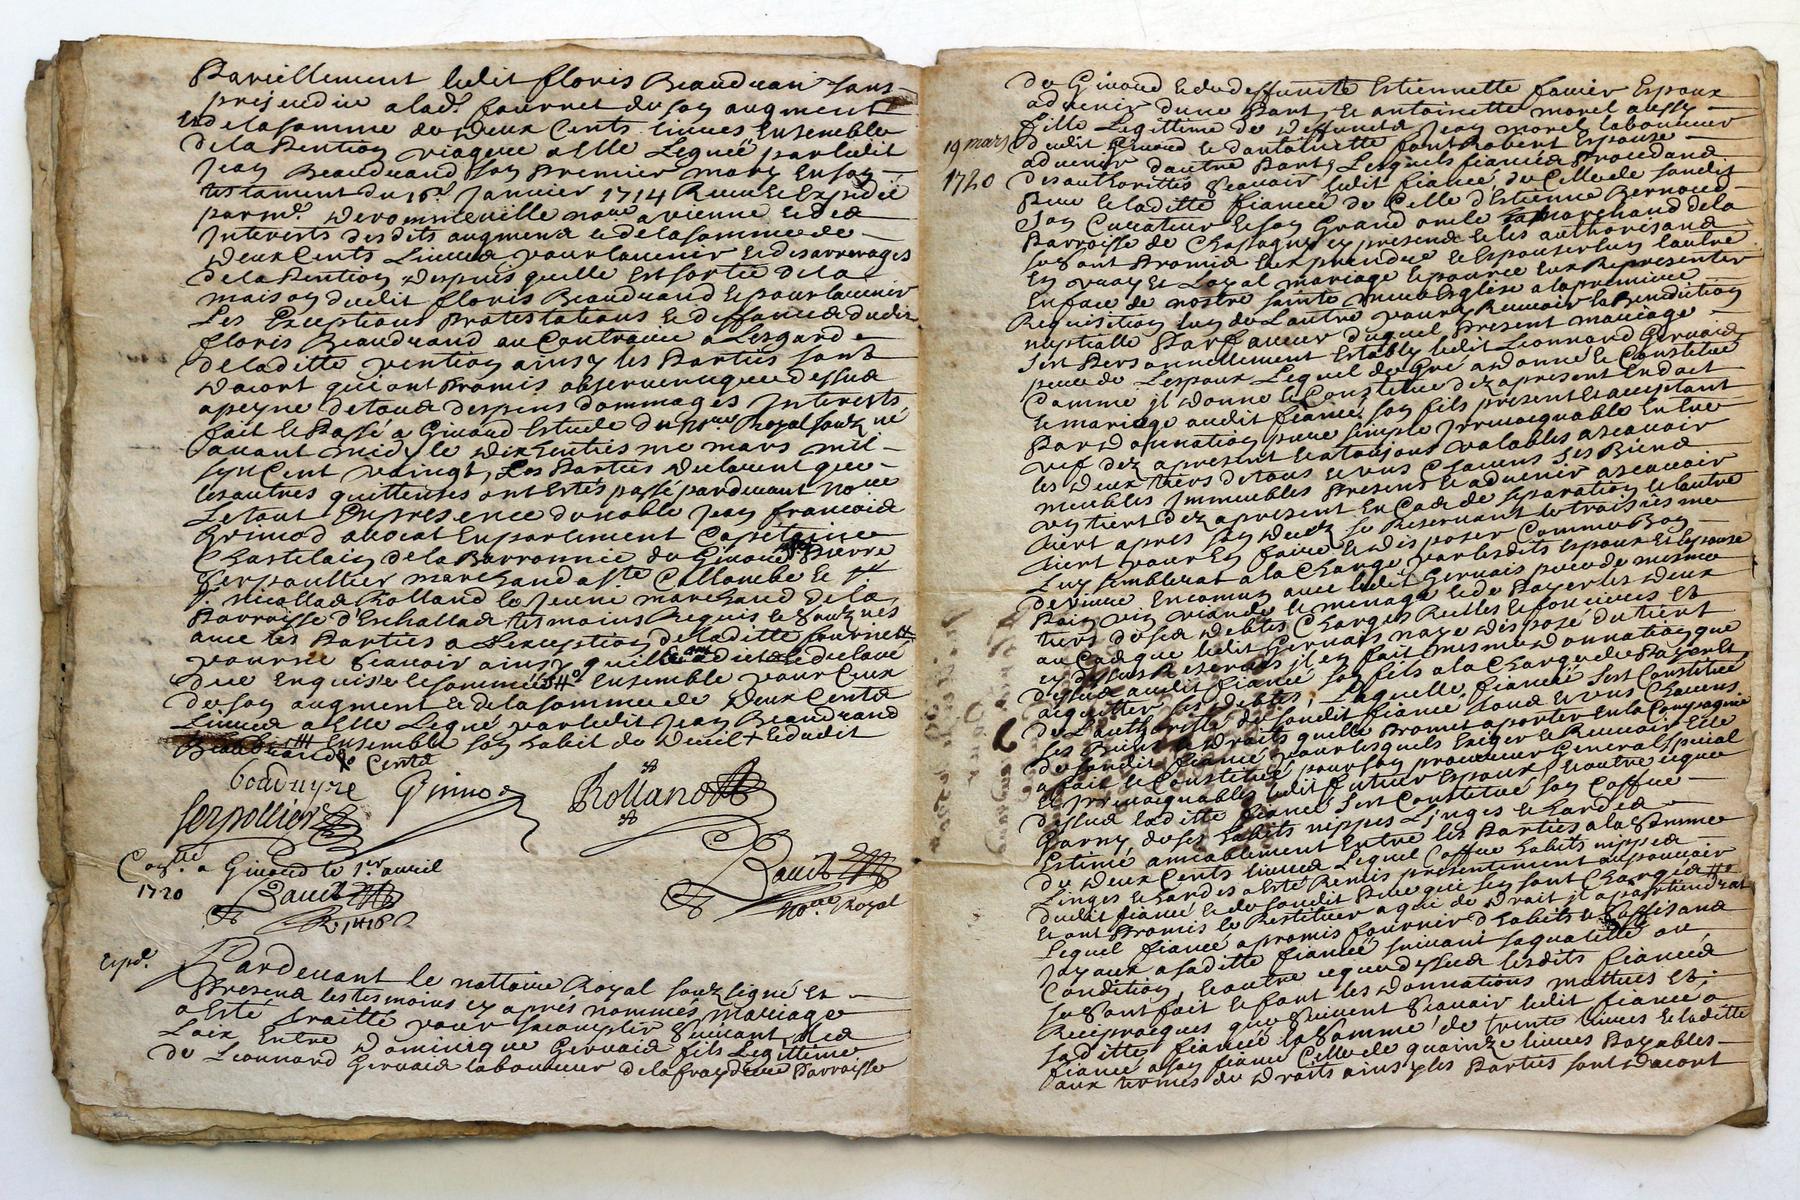 Pareillement ledit floris Beaudrand sans
prejudice a lad. fournet de son augment
et de la somme de deux Cents livres Ensemble
de la Pention viagere a Elle Leguée par ledit
Jean Beaudrand son Premier mary En son
testament du 16 Janvier 1714 Receu et Expedié
par me. notre a vienne et des
Interets desdits augment et de la somme de
deux Cents Livres pour lavenir et des arrerages
de la Pention depuis quelle Est sortie de la
maison dudit floris Beaudrand et pour lavenir
Les Exceptions Protestations et deffances dudit
floris Beaudrand au Contraire a Lesgard
de laditte pention ainsy les Parties sont
dacort qui ont Promis observer ceque dessus
a peyne de tous despens dommages Interests
fait et Passé a Givord Estude du nore Royal soubz né
avant midy le dixseptiesme mars mil
sept Cent vaingt, Les Parties declarent que
les autres quittenses ont Estés passé pardevant nore
Le tout En presence de noble Jean francois
Grimod avocat En parlement Capitaine
Chastelain de la Barronnie de Givord Pierre
Serpaullier marchand a ste Collombe et sr
nicollas Rolland le Jeune marchand de la
Parroisse d'Eschallas tesmoins Requis et soubznés
avec les Parties a L'exception de laditte fournet
pour ne scavoir ainsy quelle a dit et declaré
de ce Enquise et sommée Ensemble pour Ceux
de son augment et de la somme de deux Cents
Livres a Elle Legué par ledit Jean Beaudrand
Ensemble son habit de deuil et dudit
Cents
Bodrungre Girimod Rolland
Serpollier
Con.lé a Givord le 1er avril
1720
nore Royal
Expd.
Pardevant le nottaire Royal soubzsigné et
Presens les tesmoins cy aprés nommés, mariage
a Esté traitté pour saccomplir suivant Nos
Loix Entre Dominique Gervais fils Legittime
de Leonnard Gervais laboureur de la Parroisse
de Givord et de deffuncte Estiennette favier Espoux
advenir dune Part, Et antoinette morel aussy
fille Legittime de deffunct Jean morel laboureur
19 mars
dudit Givord et dantoinette Robert Espouse
advenir dautre Part, Lesquels fiancés Procedans
1720
des authorittés scavoir ledit fiancé de Celle de sondit
Pere et laditte fiancée de Celle d'Estienne Bernoud
son Curateur et son Grand oncle marchand de la
Parroisse de Chassagny cy presens et les authorisans
se sont Promis Eux prendre et Espouser lun lautre
En vray Et Loyal mariage et pour ce Eux Representer
En face de nostre sainte mere Esglise a la premiere
Requisition lun de Lautre pour y Recevoir la Benediction
nuptialle Par faveur duquel present mariage
sest Personnellement Estably ledit Leonnard Gervais
pere de Lespoux Lequel de Gré a donné et Constitué
Comme il donne et Constitue dez apresent En dot
et mariage audit fiancé son fils present et acceptant
Par donnation pure simple Irrevocquable Entre
vifs dez apresent et a toujours valables a scavoir
les deux tiers de tous et uns Chacuns ses Biens
meubles Immeubles Presens et advenir a scavoir
un tiert dez apresent En Cas de separation et lautre
tiert apres son decez se Reservant le troisiesme
tiert pour En faire et disposer Comme Bon
Luy semblerat a la Charge par lesdits Espoux et Espouse
de vivre En comun avec ledit Gervais pere de mesme
Pain vin viande et menage et de Payer les deux
tiers de ses debtes Charges Reelles et foncieres Et
au Cas que ledit Gervais naye dispose du tiert
cy dessus Reservés il En fait mesme donnation que
dessus audit fiancé son fils a la Charge de Payer Et
acquitter ses debtes, Laquelle fiancée sest Constitué
de L'authorité de sondit fiancé tous et uns Chacuns
ses Biens et droits quelle Promet aporter En la Compagnie
de sondit fiancé pour lesquels Exiger et Recevoir Elle
a fait et Constitué pour son procureur General special
et Irrevocquables ledit futur Espoux Et outre ceque
dessus laditte fiancée sest Constitué son Coffre
Garny de ses habits nippes Linges et hardes
Estimé amiablement Entre les Parties a la somme
de deux Cents livres Lequel Coffre habits nippes
Linges et hardes a Esté Remis presentement au pouvoir
dudit fiancé et de sondit Pere qui sen sont Chargés
Et ont Promis le Restituer a qui de droit il apartiendrat
Lequel fiancé a promis fournir d'habits et
Joyaux a laditte fiancée suivant sa quallitté ou
Condition, Et outre ceque dessus lesdits fiancés
se sont fait et font les donnations muttues Et
Reciprocques que suivent scavoir ledit fiancé a
laditte fiancée la somme de trente livres et laditte
fiancée a son fiancé Celle de quainze livres Payables
aux termes de droits ainsy les Parties sont dacort